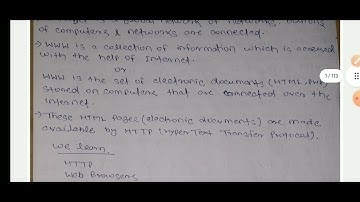 is a global network of networks,
of computers & networks are connected.
→ WWW is a collection of information which is accessed
with the help of Internet.
or
WWW is the set of electronic documents (HTML
stored on computers that are connected over the
Internet.
→ These HTML Pages (electronic documents) are made
available by HTTP (Hyper Text Transfer Protocol).
We learn,
HTTP
Web Browsers
1/113